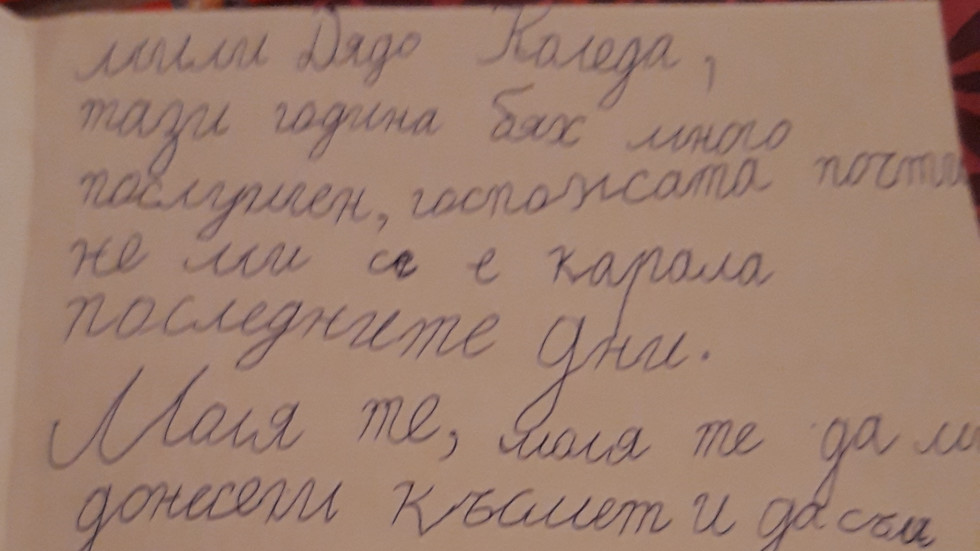 мили Дядо Коледа,
тази година бях много
послушен, госпожата почти
не ми се е карала
последните дни.
Моля те, моля те да ми
донесеш късмет и да съм